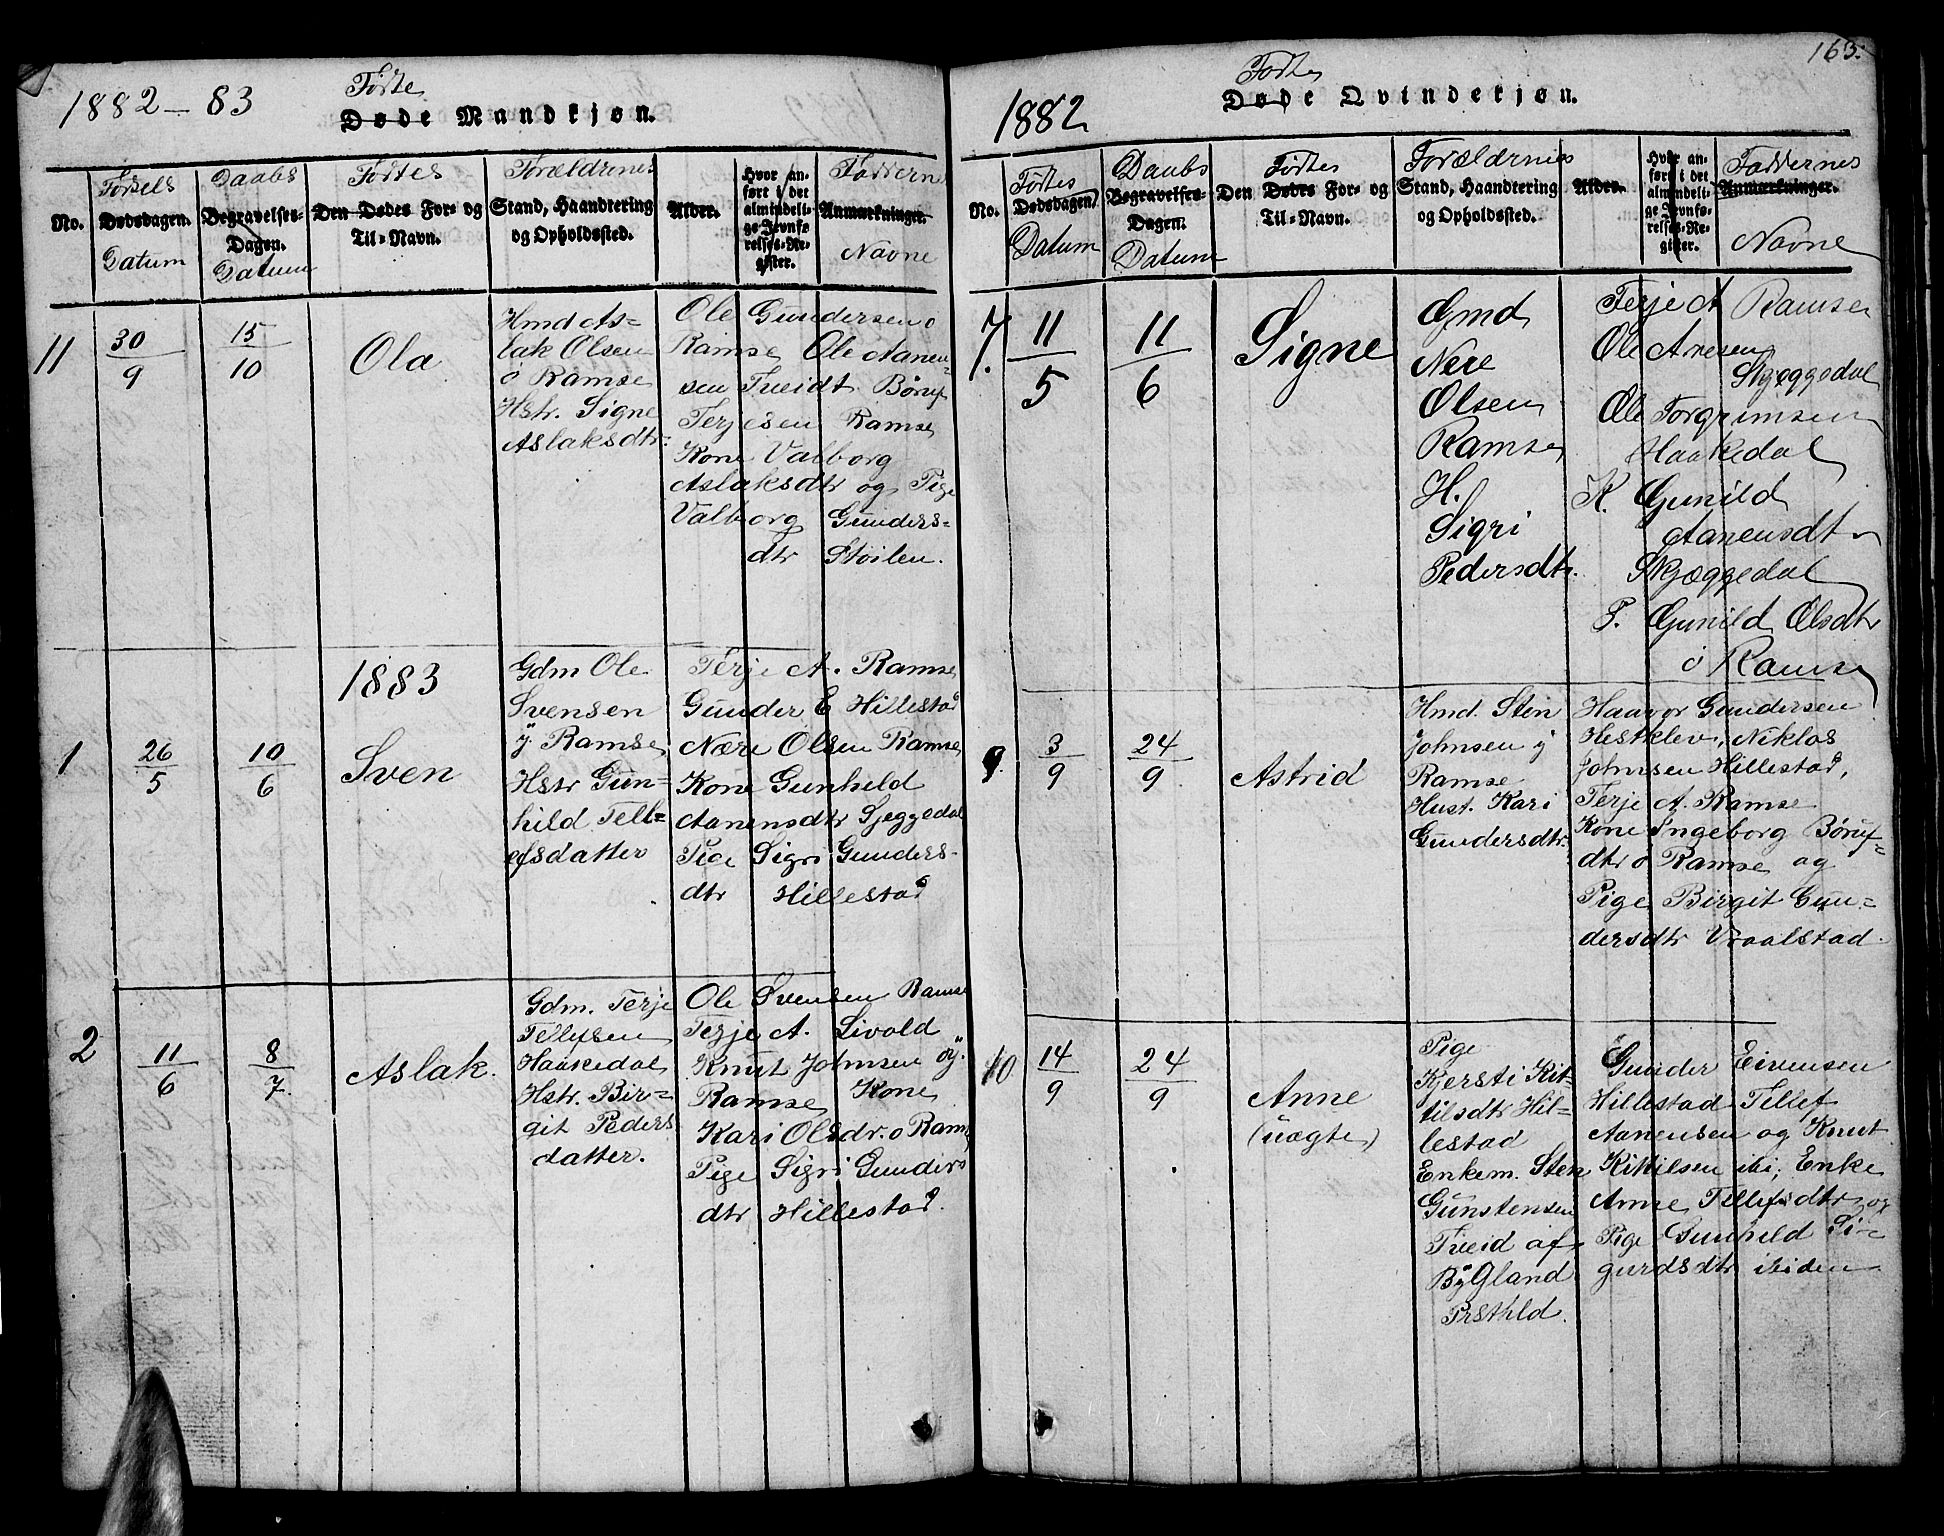 163.
1882 – 83
Fødte
Døde Mandkjøn.
No.
Fødsels
Dødsdagen.
Datum
Daabs
Begravelses-
Dagen.
Datum
Fødtes
Den Dødes For- og
Til-Navn.
Forældrenes
Stand, Haandtering
og Opholdssted.
Alder.
Hvor an-
ført i det
almindeli-
ge Jevnfø-
relses-Re-
gister.
Fadderne
Anmærkninger.
Navne
11
30/9
15/10
Ola
Hmd As-
lak Olsen
ø Ramse
Hstr. Signe
Aslaksdtr.
Ole Gundersen o
Ramse, Ole Aanen-
sen Tveidt Børuf
Terjesen Ramse,
Kone Valborg
Aslaksdtr og Pige
Valborg Gunders-
dtr Støilen.
1883
1
26/5
10/6
Sven
Gdm Ole
Svensen
y. Ramse,
Hstr Gun-
hild Tell-
efsdatter
Terje A. Ramse,
Gunder E Hillestad
Nære Olsen Ramse,
Kone Gunhild
Aanensdtr Sjeggedal
Pige Sigri Gunders-
dtr Hillestad
2
11/6
8/7
Aslak.
Gdm. Terje
Tellefsen
Haakedal
Hstr. Bir-
git Peders
datter.
Ole Svensen Ramse
Terje A. Livold
Knut Johnsen øy.
Ramse, Kone
Kari Olsdr. o Rams,
Pige Sigri Gunders
dtr Hillestad.
1882
Fødte
Døde Qvindekjøn.
No.
Fødtes
Dødsdagen
Datum
Daabs
Begravelses-
Dagen.
Datum
Fødtes
Den Dødes For- og
Til-Navn.
Forældrnes
Stand, Haandtering
og Opholdssted.
Alder.
Hvor an-
ført i det
almindeli-
ge Jevnfø-
relses-Re-
gister.
Faddernes
Anmærkninger.
Navne
7.
11/5
11/6
Signe
Gmd
Nere
Olsen
Ramse,
H.
Sigri
Pedersdtr.
Terje A Ramse
Ole Anesen
Skjeggedal
Ole Torgrimsen
Haakedal
K. Gunild
Aanensdt
Skjæggedal
P. Gunild Olsdtr
ó Ramse
9.
3/9
24/9
Astrid
Hmd. Sten
Johnsen y
Ramse
Hust. Kari
Gundersdtr.
Haavor Gundersen
Hestklev, Niklos
Johnsen Hillestad,
Terje A. Ramse
Kone Ingeborg Børuf-
dtr o Ramse og
Pige Birgit Gun-
dersdtr Vraalstad.
10
14/9
24/9
Anne
(uægte)
Pige
Kjersti Kit-
tilsdtr Hil-
lestad
Enkem. Sten
Gunstensen
Tveid af
Bygland
Prsthld.
Gunder Eivensen
Hillestad Tellef
Aanensen og Knut
Kittilsen ibi, Enke
Anne Tellefsdtr og
Pige Gunhild Si-
gurdsdtr ibiden